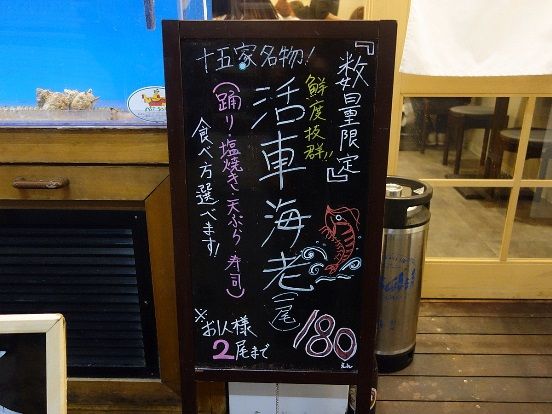 『数量限定』
十五家名物!
鮮度抜群!!
活車海老(一尾)
180えん
(踊り・塩焼き・天ぷら・寿司)
食べ方選べます!
※お1人様
2尾まで